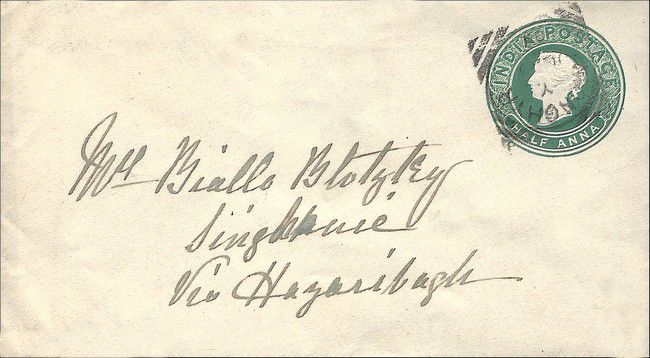 INDIA POSTAGE
HALF ANNA
Biallo Blotzky
Singhanie
Via Hazaribagh